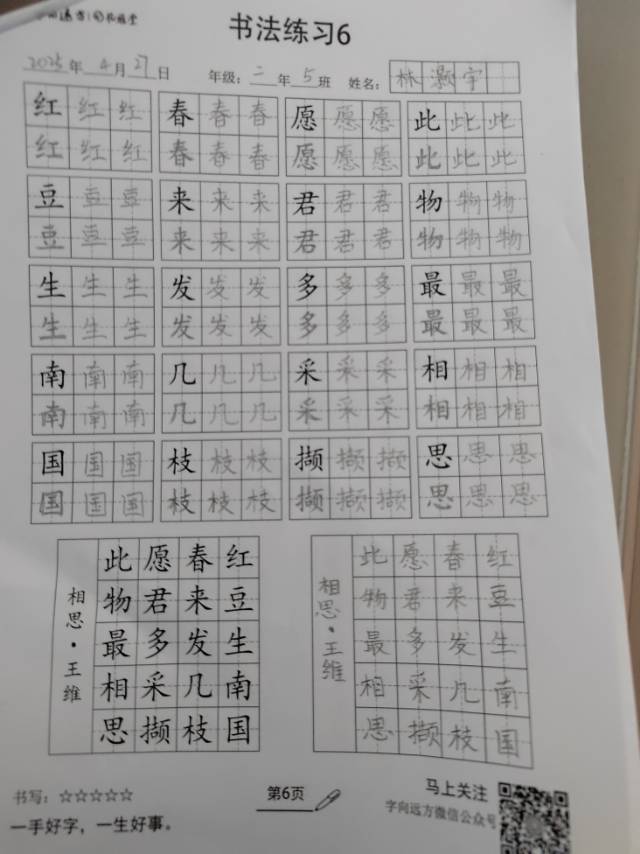 书法练习6
2025年4月27日 年级：二年5班 姓名：林灏宇
红红红 春春春 愿愿愿 此此此
红红红 春春春 愿愿愿 此此此
豆豆豆 来来来 君君君 物物物
豆豆豆 来来来 君君君 物物物
生生生 发发发 多多多 最最最
生生生 发发发 多多多 最最最
南南南 几几几 采采采 相相相
南南南 几几几 采采采 相相相
国国国 枝枝枝 撷撷撷 思思思
国国国 枝枝枝 撷撷撷 思思思
红豆生南国
春来发几枝
愿君多采撷
此物最相思
相思·王维
红豆生南国
春来发几枝
愿君多采撷
此物最相思
相思·王维
书写：☆☆☆☆☆
第6页
马上关注
字向远方微信公众号
一手好字，一生好事。